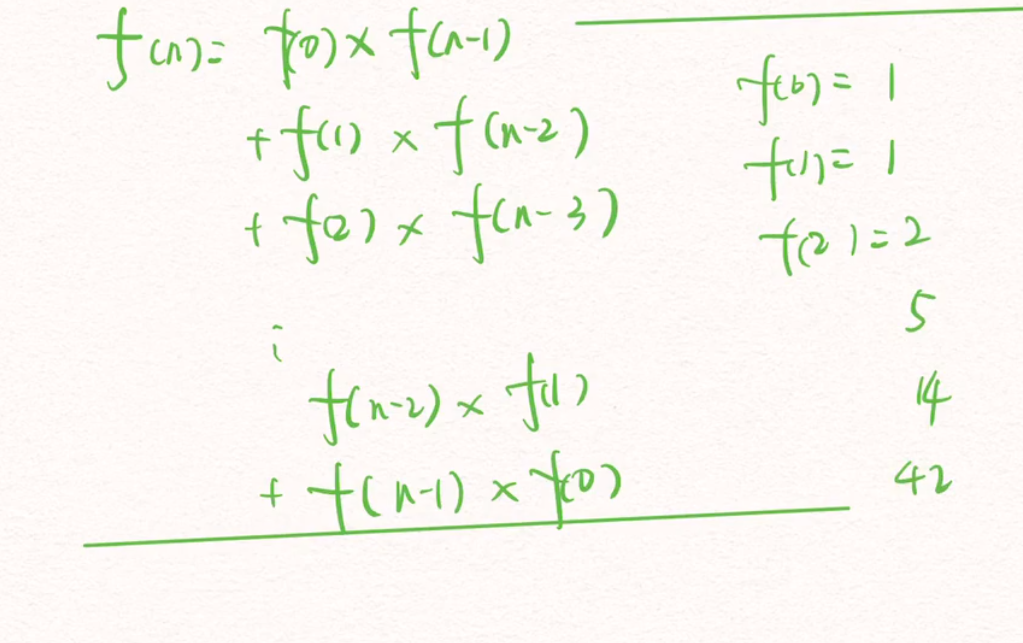 f(n)= f(0) × f(n-1)
+ f(1) × f(n-2)
+ f(2) × f(n-3)
⋮
f(n-2) × f(1)
+ f(n-1) × f(0)
f(0) = 1
f(1) = 1
f(2) = 2
5
14
42